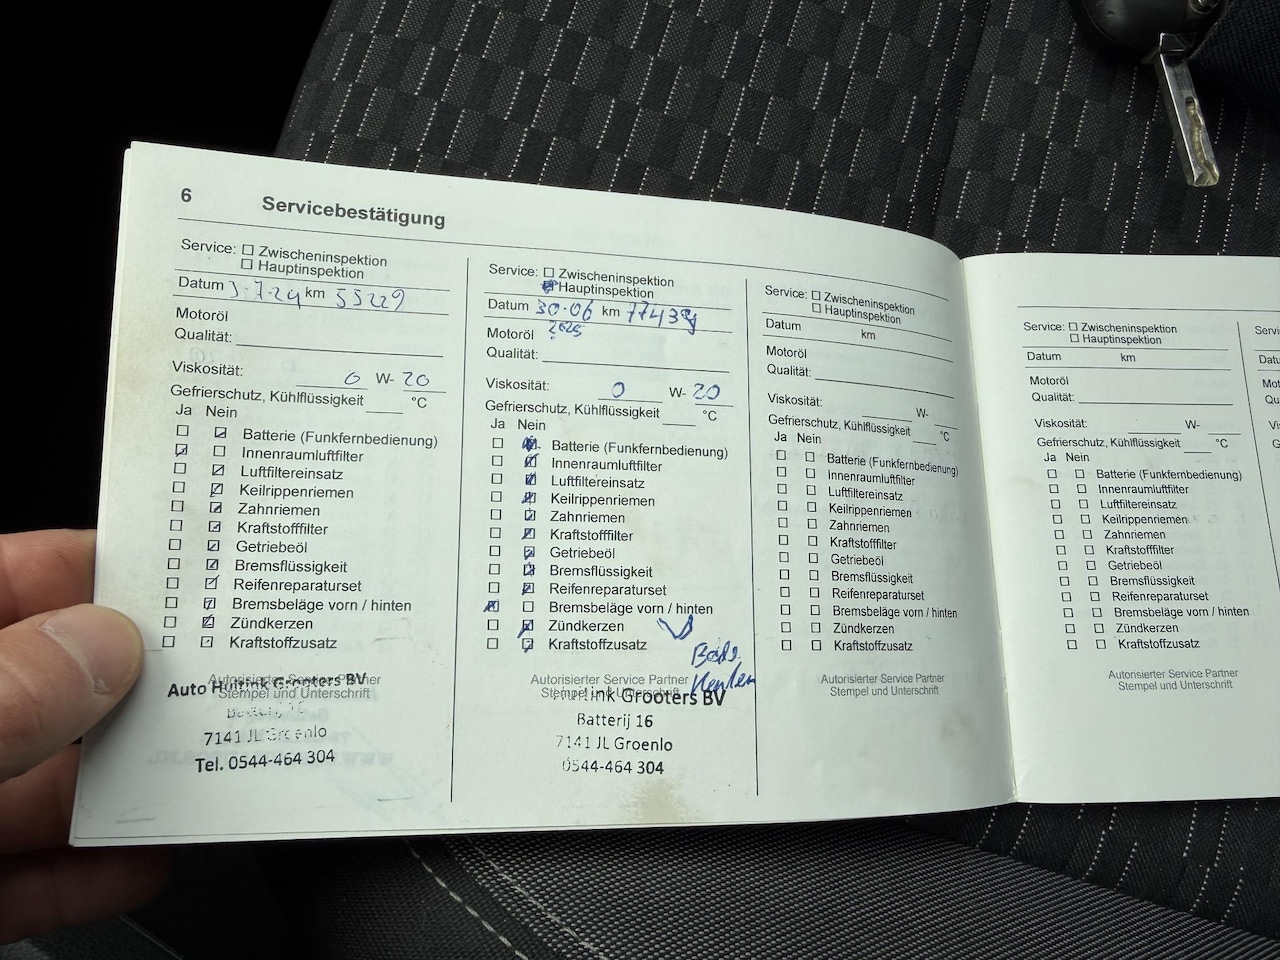 6 Servicebestätigung
Service: ☐ Zwischeninspektion
☐ Hauptinspektion
Datum 3-7-24 km 55229
Motoröl
Qualität:
Viskosität: 0 W- 20
Gefrierschutz, Kühlflüssigkeit °C
Ja Nein
☐ ☑ Batterie (Funkfernbedienung)
☑ ☐ Innenraumluftfilter
☐ ☑ Luftfiltereinsatz
☐ ☑ Keilrippenriemen
☐ ☑ Zahnriemen
☐ ☑ Kraftstofffilter
☐ ☑ Getriebeöl
☐ ☑ Bremsflüssigkeit
☐ ☑ Reifenreparaturset
☐ ☑ Bremsbeläge vorn / hinten
☐ ☑ Zündkerzen
☐ ☑ Kraftstoffzusatz
Autorisierter Service Partner
Stempel und Unterschrift
Auto Huitink Grooters BV
Batterij 16
7141 JL Groenlo
Tel. 0544-464 304
Service: ☐ Zwischeninspektion
☑ Hauptinspektion
Datum 30-06 km 77439
2025
Motoröl
Qualität:
Viskosität: 0 W- 20
Gefrierschutz, Kühlflüssigkeit °C
Ja Nein
☐ ☑ Batterie (Funkfernbedienung)
☐ ☑ Innenraumluftfilter
☐ ☑ Luftfiltereinsatz
☐ ☑ Keilrippenriemen
☐ ☑ Zahnriemen
☐ ☑ Kraftstofffilter
☐ ☑ Getriebeöl
☐ ☑ Bremsflüssigkeit
☐ ☑ Reifenreparaturset
☑ ☐ Bremsbeläge vorn / hinten
☐ ☑ Zündkerzen
☐ ☑ Kraftstoffzusatz
Autorisierter Service Partner
Stempel und Unterschrift
Huitink Grooters BV
Batterij 16
7141 JL Groenlo
0544-464 304
Service: ☐ Zwischeninspektion
☐ Hauptinspektion
Datum km
Motoröl
Qualität:
Viskosität: W-
Gefrierschutz, Kühlflüssigkeit °C
Ja Nein
☐ ☐ Batterie (Funkfernbedienung)
☐ ☐ Innenraumluftfilter
☐ ☐ Luftfiltereinsatz
☐ ☐ Keilrippenriemen
☐ ☐ Zahnriemen
☐ ☐ Kraftstofffilter
☐ ☐ Getriebeöl
☐ ☐ Bremsflüssigkeit
☐ ☐ Reifenreparaturset
☐ ☐ Bremsbeläge vorn / hinten
☐ ☐ Zündkerzen
☐ ☐ Kraftstoffzusatz
Autorisierter Service Partner
Stempel und Unterschrift
Service: ☐ Zwischeninspektion
☐ Hauptinspektion
Datum km
Motoröl
Qualität:
Viskosität: W-
Gefrierschutz, Kühlflüssigkeit °C
Ja Nein
☐ ☐ Batterie (Funkfernbedienung)
☐ ☐ Innenraumluftfilter
☐ ☐ Luftfiltereinsatz
☐ ☐ Keilrippenriemen
☐ ☐ Zahnriemen
☐ ☐ Kraftstofffilter
☐ ☐ Getriebeöl
☐ ☐ Bremsflüssigkeit
☐ ☐ Reifenreparaturset
☐ ☐ Bremsbeläge vorn / hinten
☐ ☐ Zündkerzen
☐ ☐ Kraftstoffzusatz
Autorisierter Service Partner
Stempel und Unterschrift